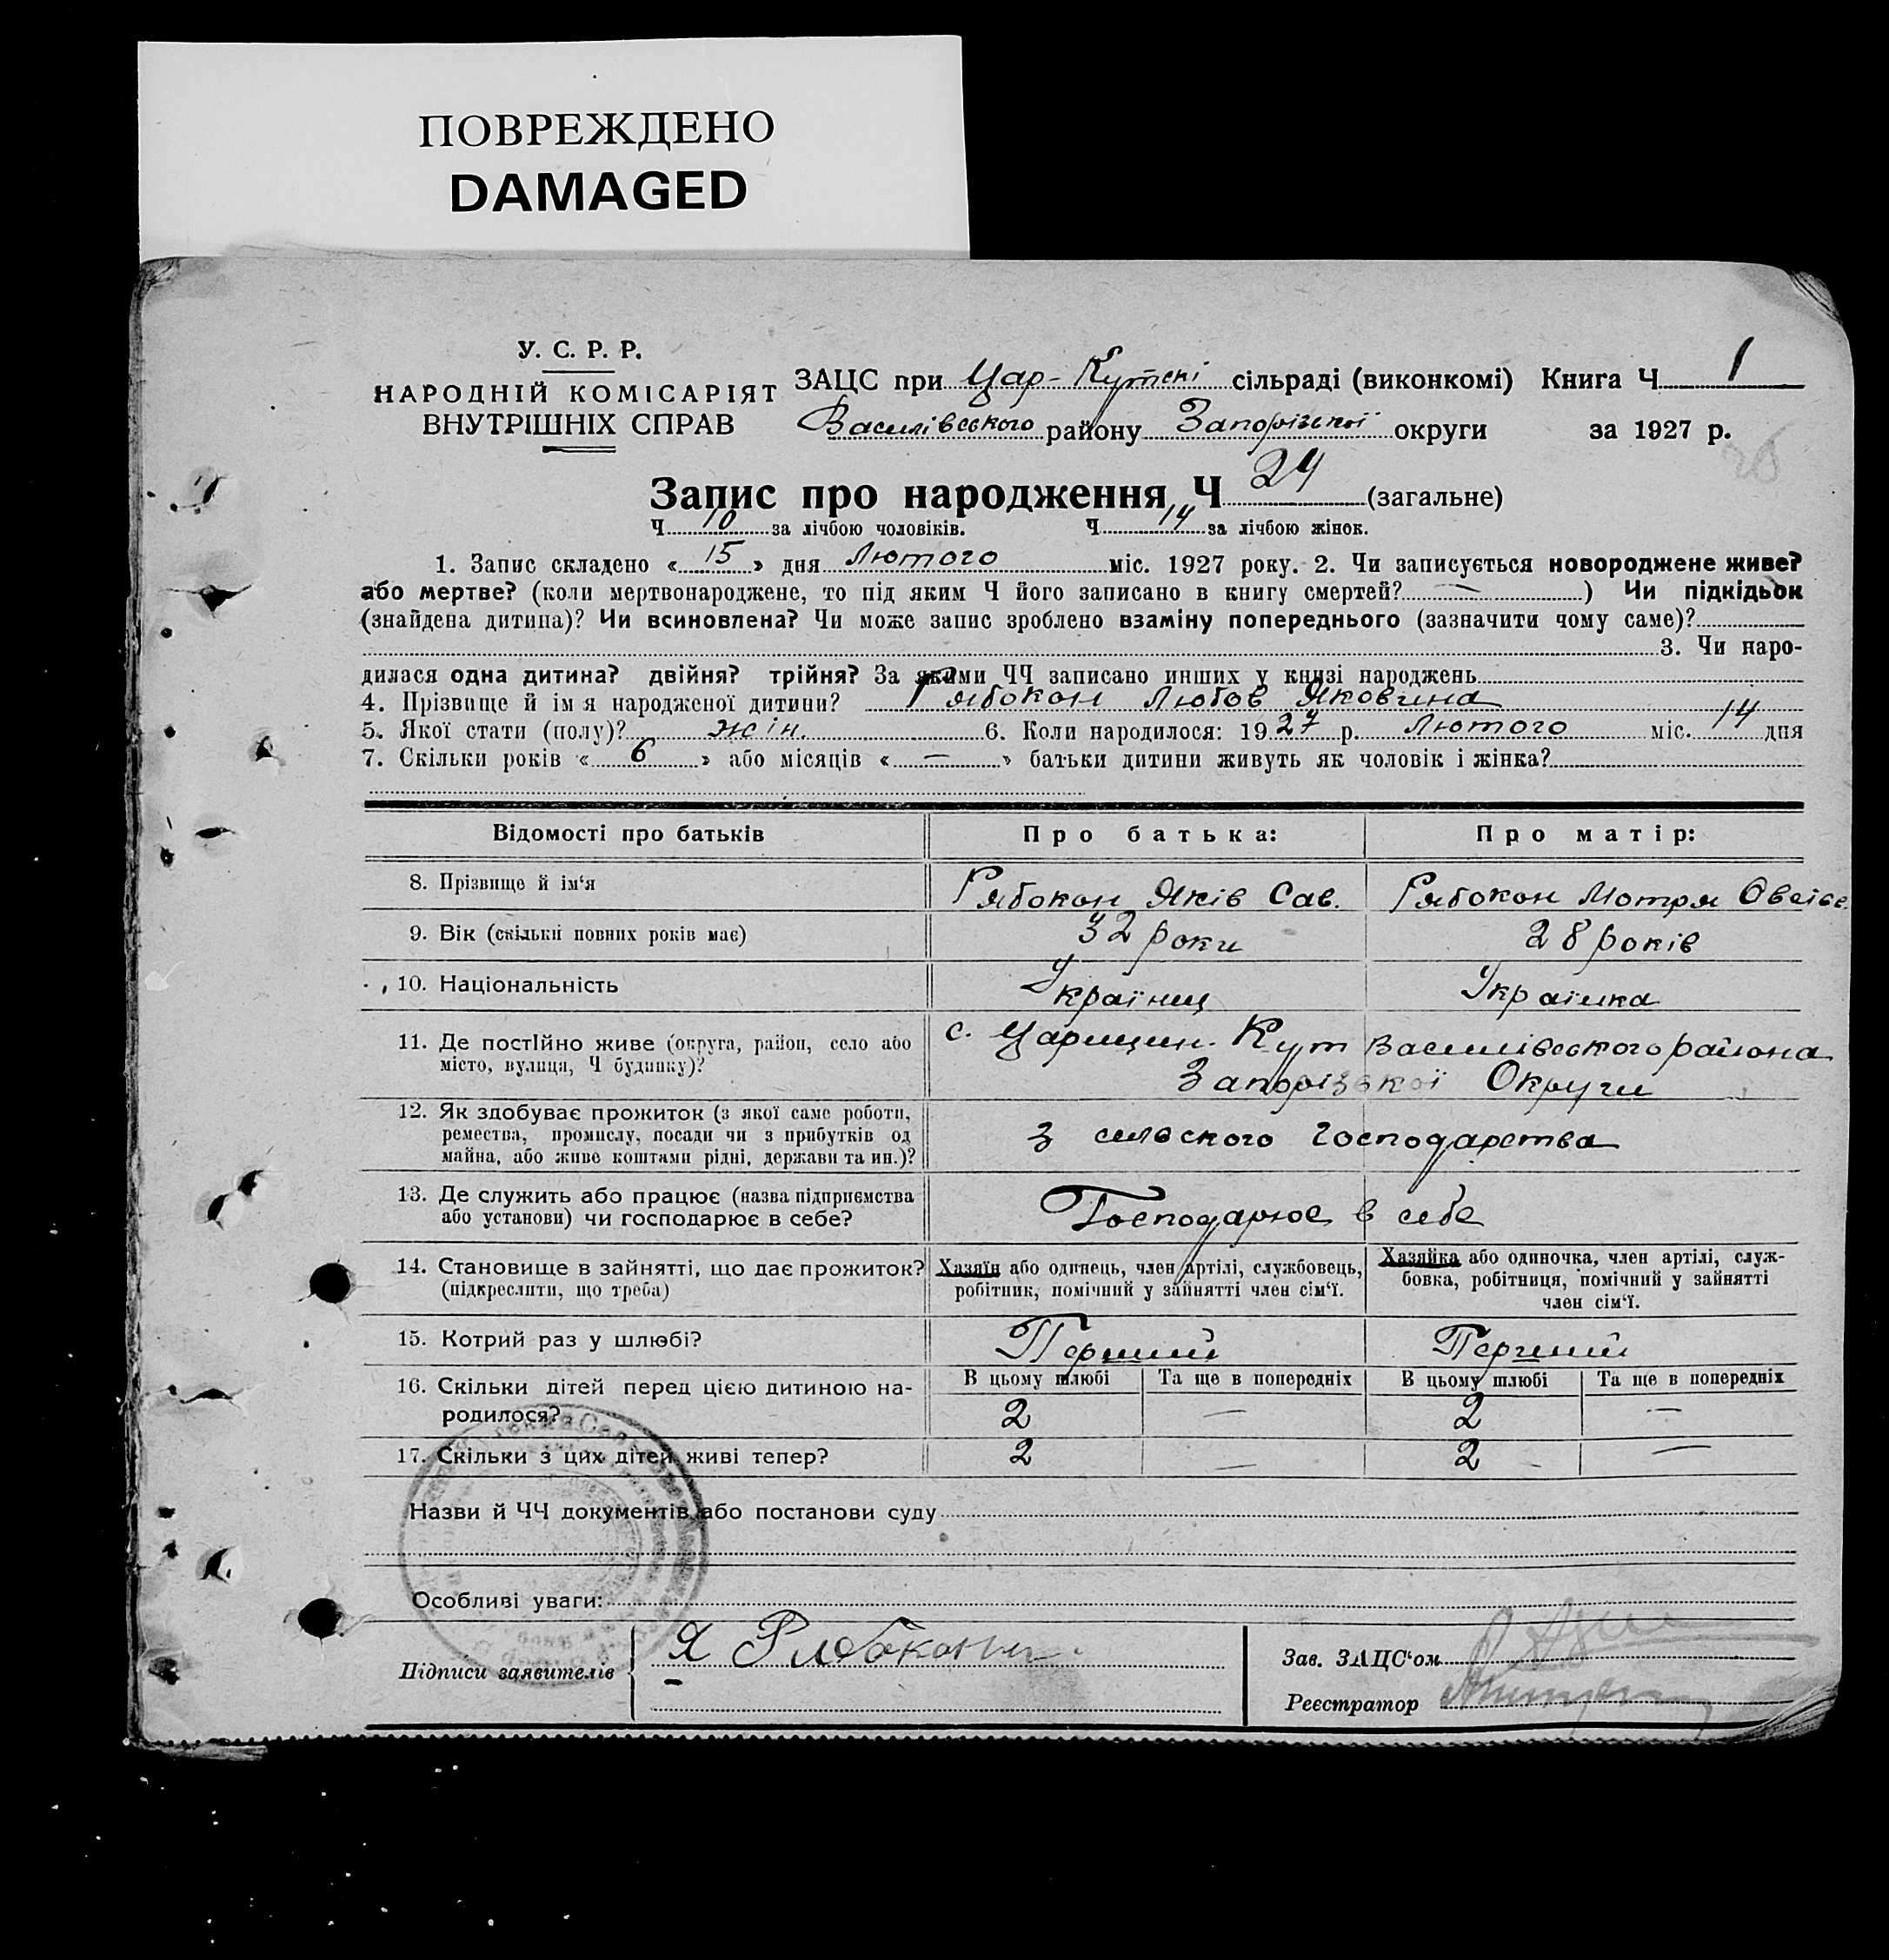 ПОВРЕЖДЕНО
DAMAGED
У. С. Р. Р.
НАРОДНІЙ КОМІСАРІЯТ
ВНУТРІШНІХ СПРАВ
ЗАЦС при Цар-Кутскі сільраді (виконкомі) Книга Ч 1
Василівського району Запорізької округи за 1927 р.
Запис про народження Ч 24 (загальне)
Ч 10 за лічбою чоловіків. Ч 14 за лічбою жінок.
1. Запис складено « 15 » дня Лютого міс. 1927 року. 2. Чи записується новороджене живе?
або мертве? (коли мертвонароджене, то під яким Ч його записано в книгу смертей? — ) Чи підкідьок
(знайдена дитина)? Чи всиновлена? Чи може запис зроблено взаміну попереднього (зазначити чому саме)?
3. Чи наро-
дилася одна дитина? двійня? трійня? За якими ЧЧ записано инших у книзі народжень
4. Прізвище й ім я народженої дитини? Рябокон Любов Яковчина
5. Якої стати (полу)? жін. 6. Коли народилося: 1927 р. Лютого міс. 14 дня
7. Скільки років « 6 » або місяців « — » батьки дитини живуть як чоловік і жінка?
Відомості про батьків Про батька: Про матір:
8. Прізвище й ім‘я Рябокон Яків Сав. Рябокон Мотря Овсіев.
9. Вік (скільки повних років має) 32 роки 28 років
10. Національність Українц Українка
11. Де постійно живе (округа, район, село або
місто, вулиця, Ч будинку)?
с. Царицин. Кут Василівського района
Запорізської Округи
12. Як здобуває прожиток (з якої саме роботи,
ремества, промислу, посади чи з прибутків од
майна, або живе коштами рідні, держави та ин.)?
З сильского господарства
13. Де служить або працює (назва підприємства
або установи) чи господарює в себе?
Господарює в себе
14. Становище в зайнятті, що дає прожиток?
(підкреслити, що треба)
Хазяїн або одинець, член артілі, службовець,
робітник, помічний у зайнятті член сім‘ї.
Хазяйка або одиночка, член артілі, служ-
бовка, робітниця, помічний у зайнятті
член сім‘ї.
15. Котрий раз у шлюбі? Перший Перший
16. Скільки дітей перед цією дитиною на-
родилося?
В цьому шлюбі Та ще в попередніх В цьому шлюбі Та ще в попередніх
2 — 2 —
17. Скільки з цих дітей живі тепер? 2 — 2 —
Назви й ЧЧ документів або постанови суду
Особливі уваги:
Підписи заявителів Я Рябоконь
Зав. ЗАЦС‘ом
Реєстратор